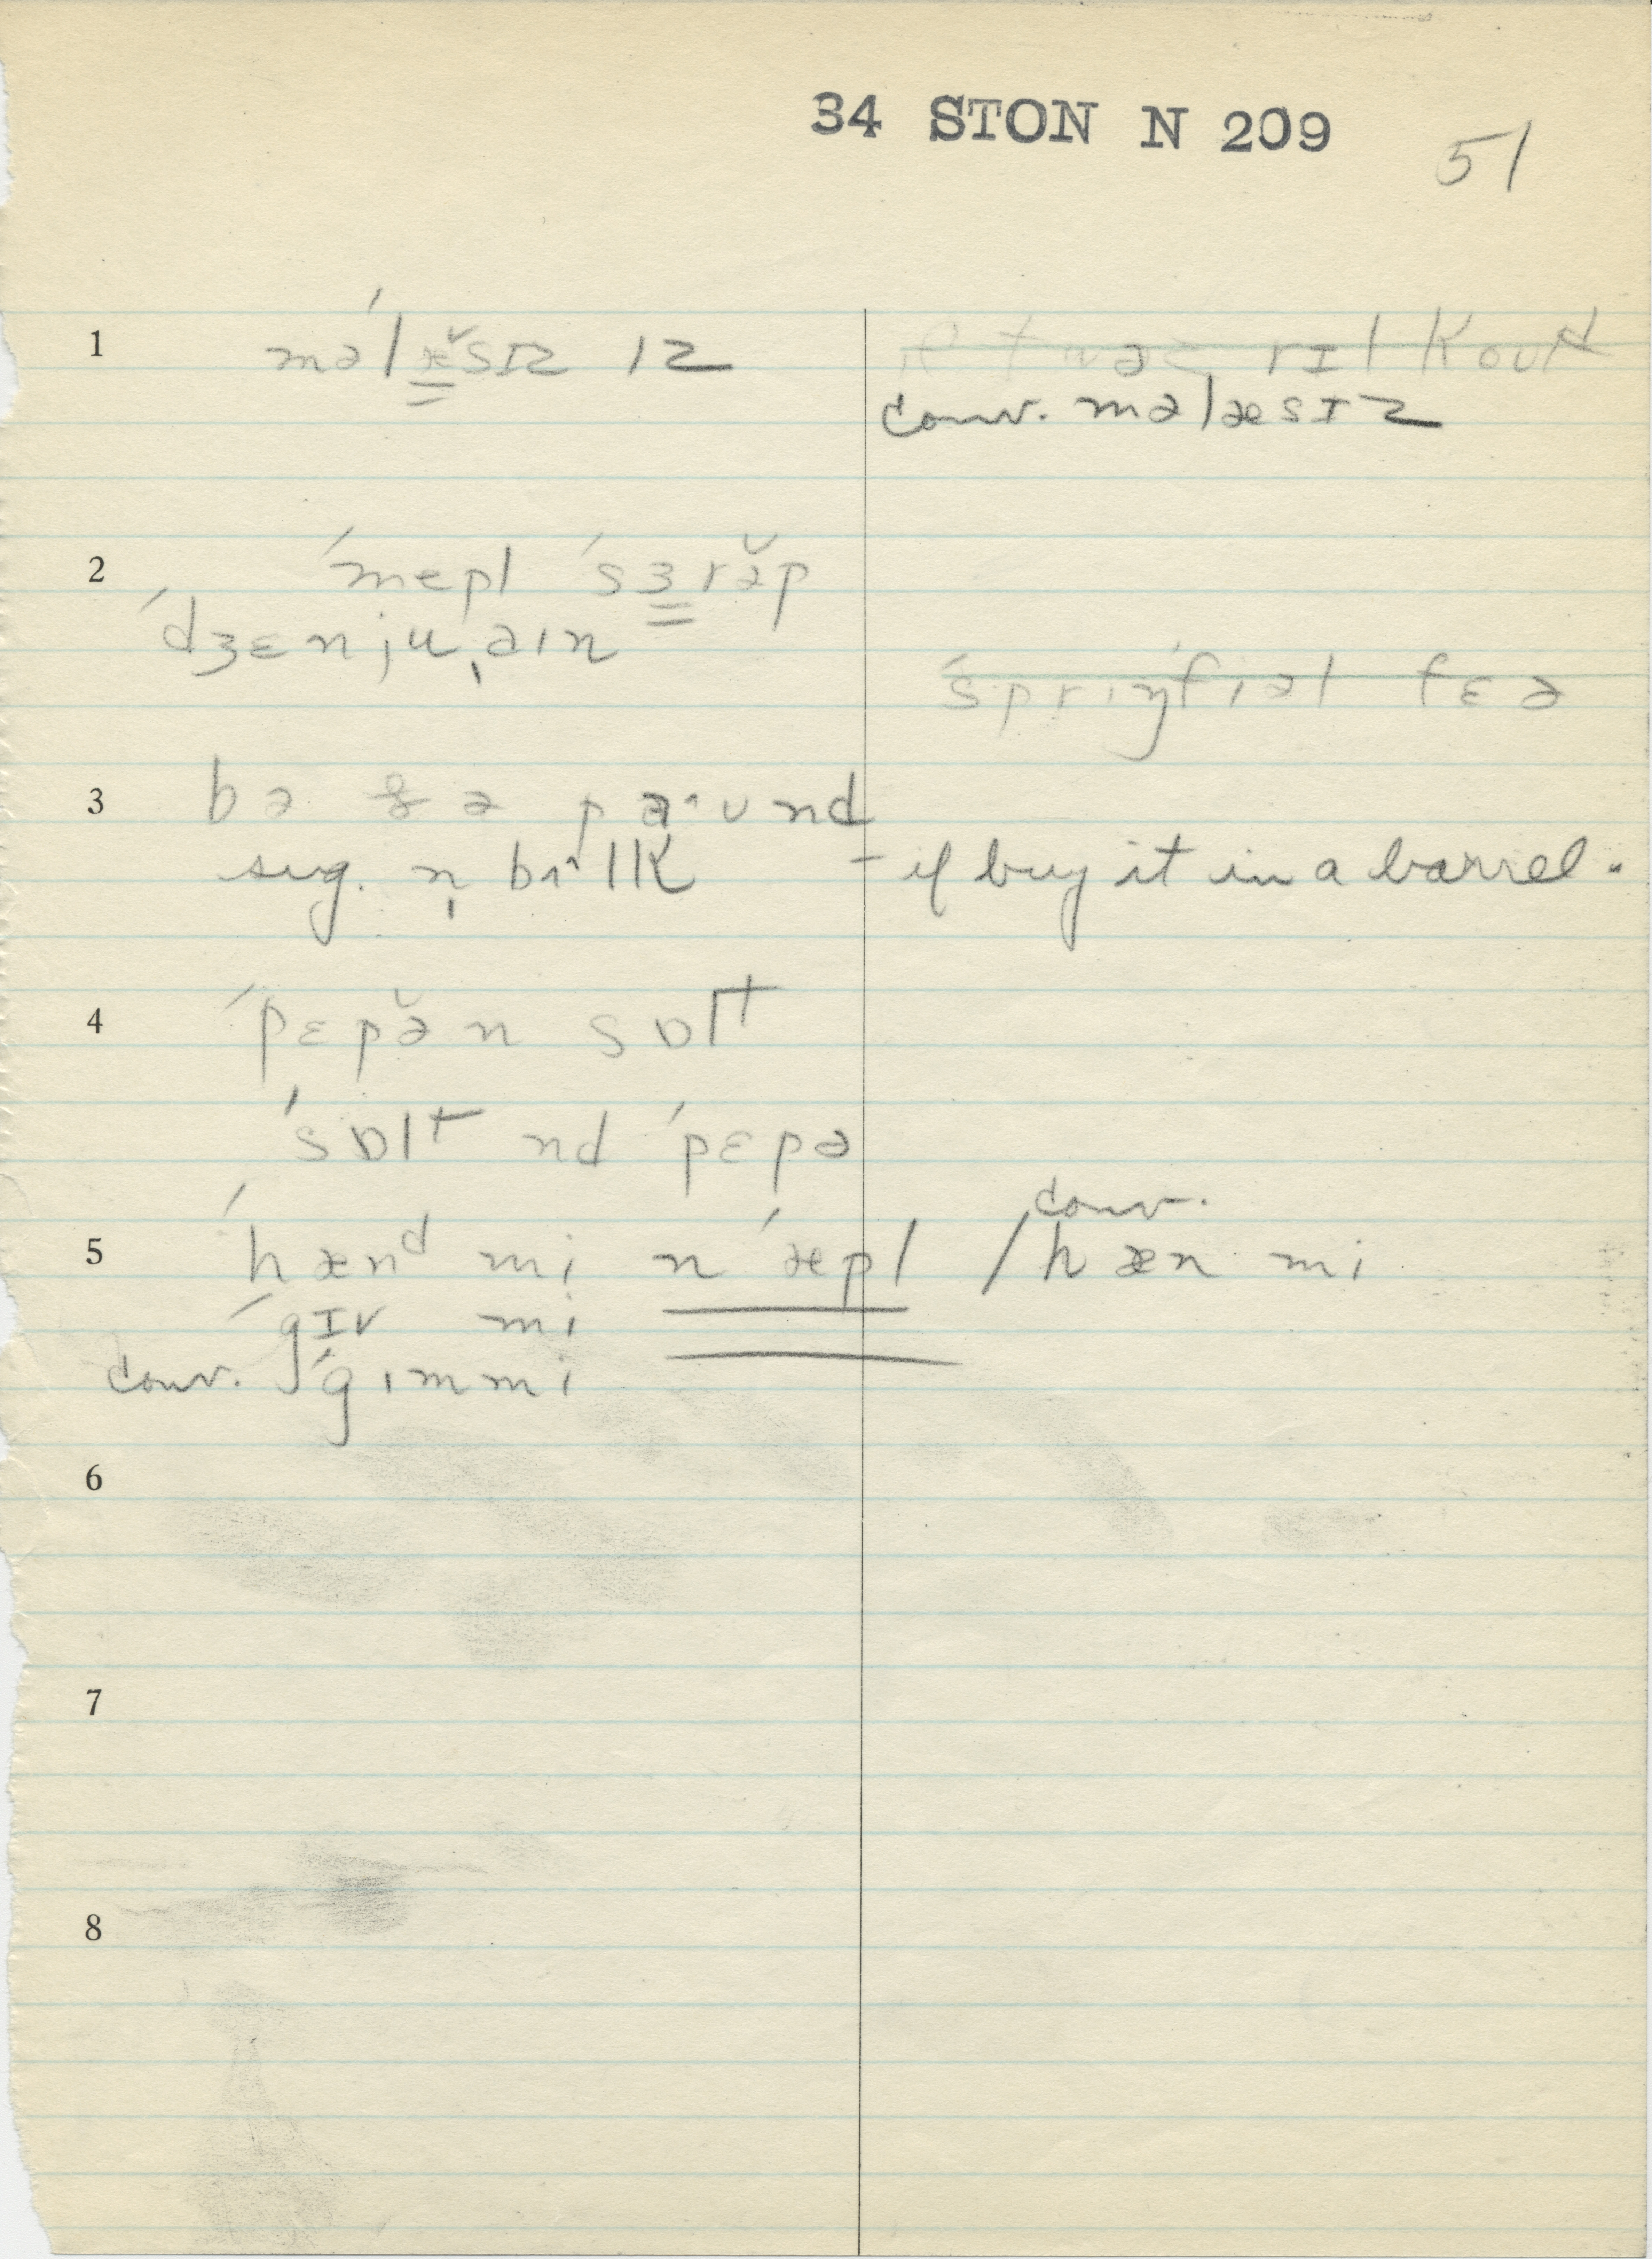 34 STON N 209
51
1 mə'læ̆sɪz ɪz
ɪt wəz rɪl koʊd
conv. məlæsɪz
2 ˈmepl ˈsɜrə̆p
ˈdʒɛnjuˌaɪn
ˈsprɪŋˈfiəl fɛə
3 bə ðə paˑʊnd
sug. n̩ bʌ^lk – if buy it in a barrel.
4 ˈpɛpə̆ n sɒlt
ˈsɒlt nd ˈpɛpə
conv.
5 ˈhænᵈ mi n ˈæpl / hæn mi
ˈgɪv mi
conv. ˈgɪmmi
6
7
8